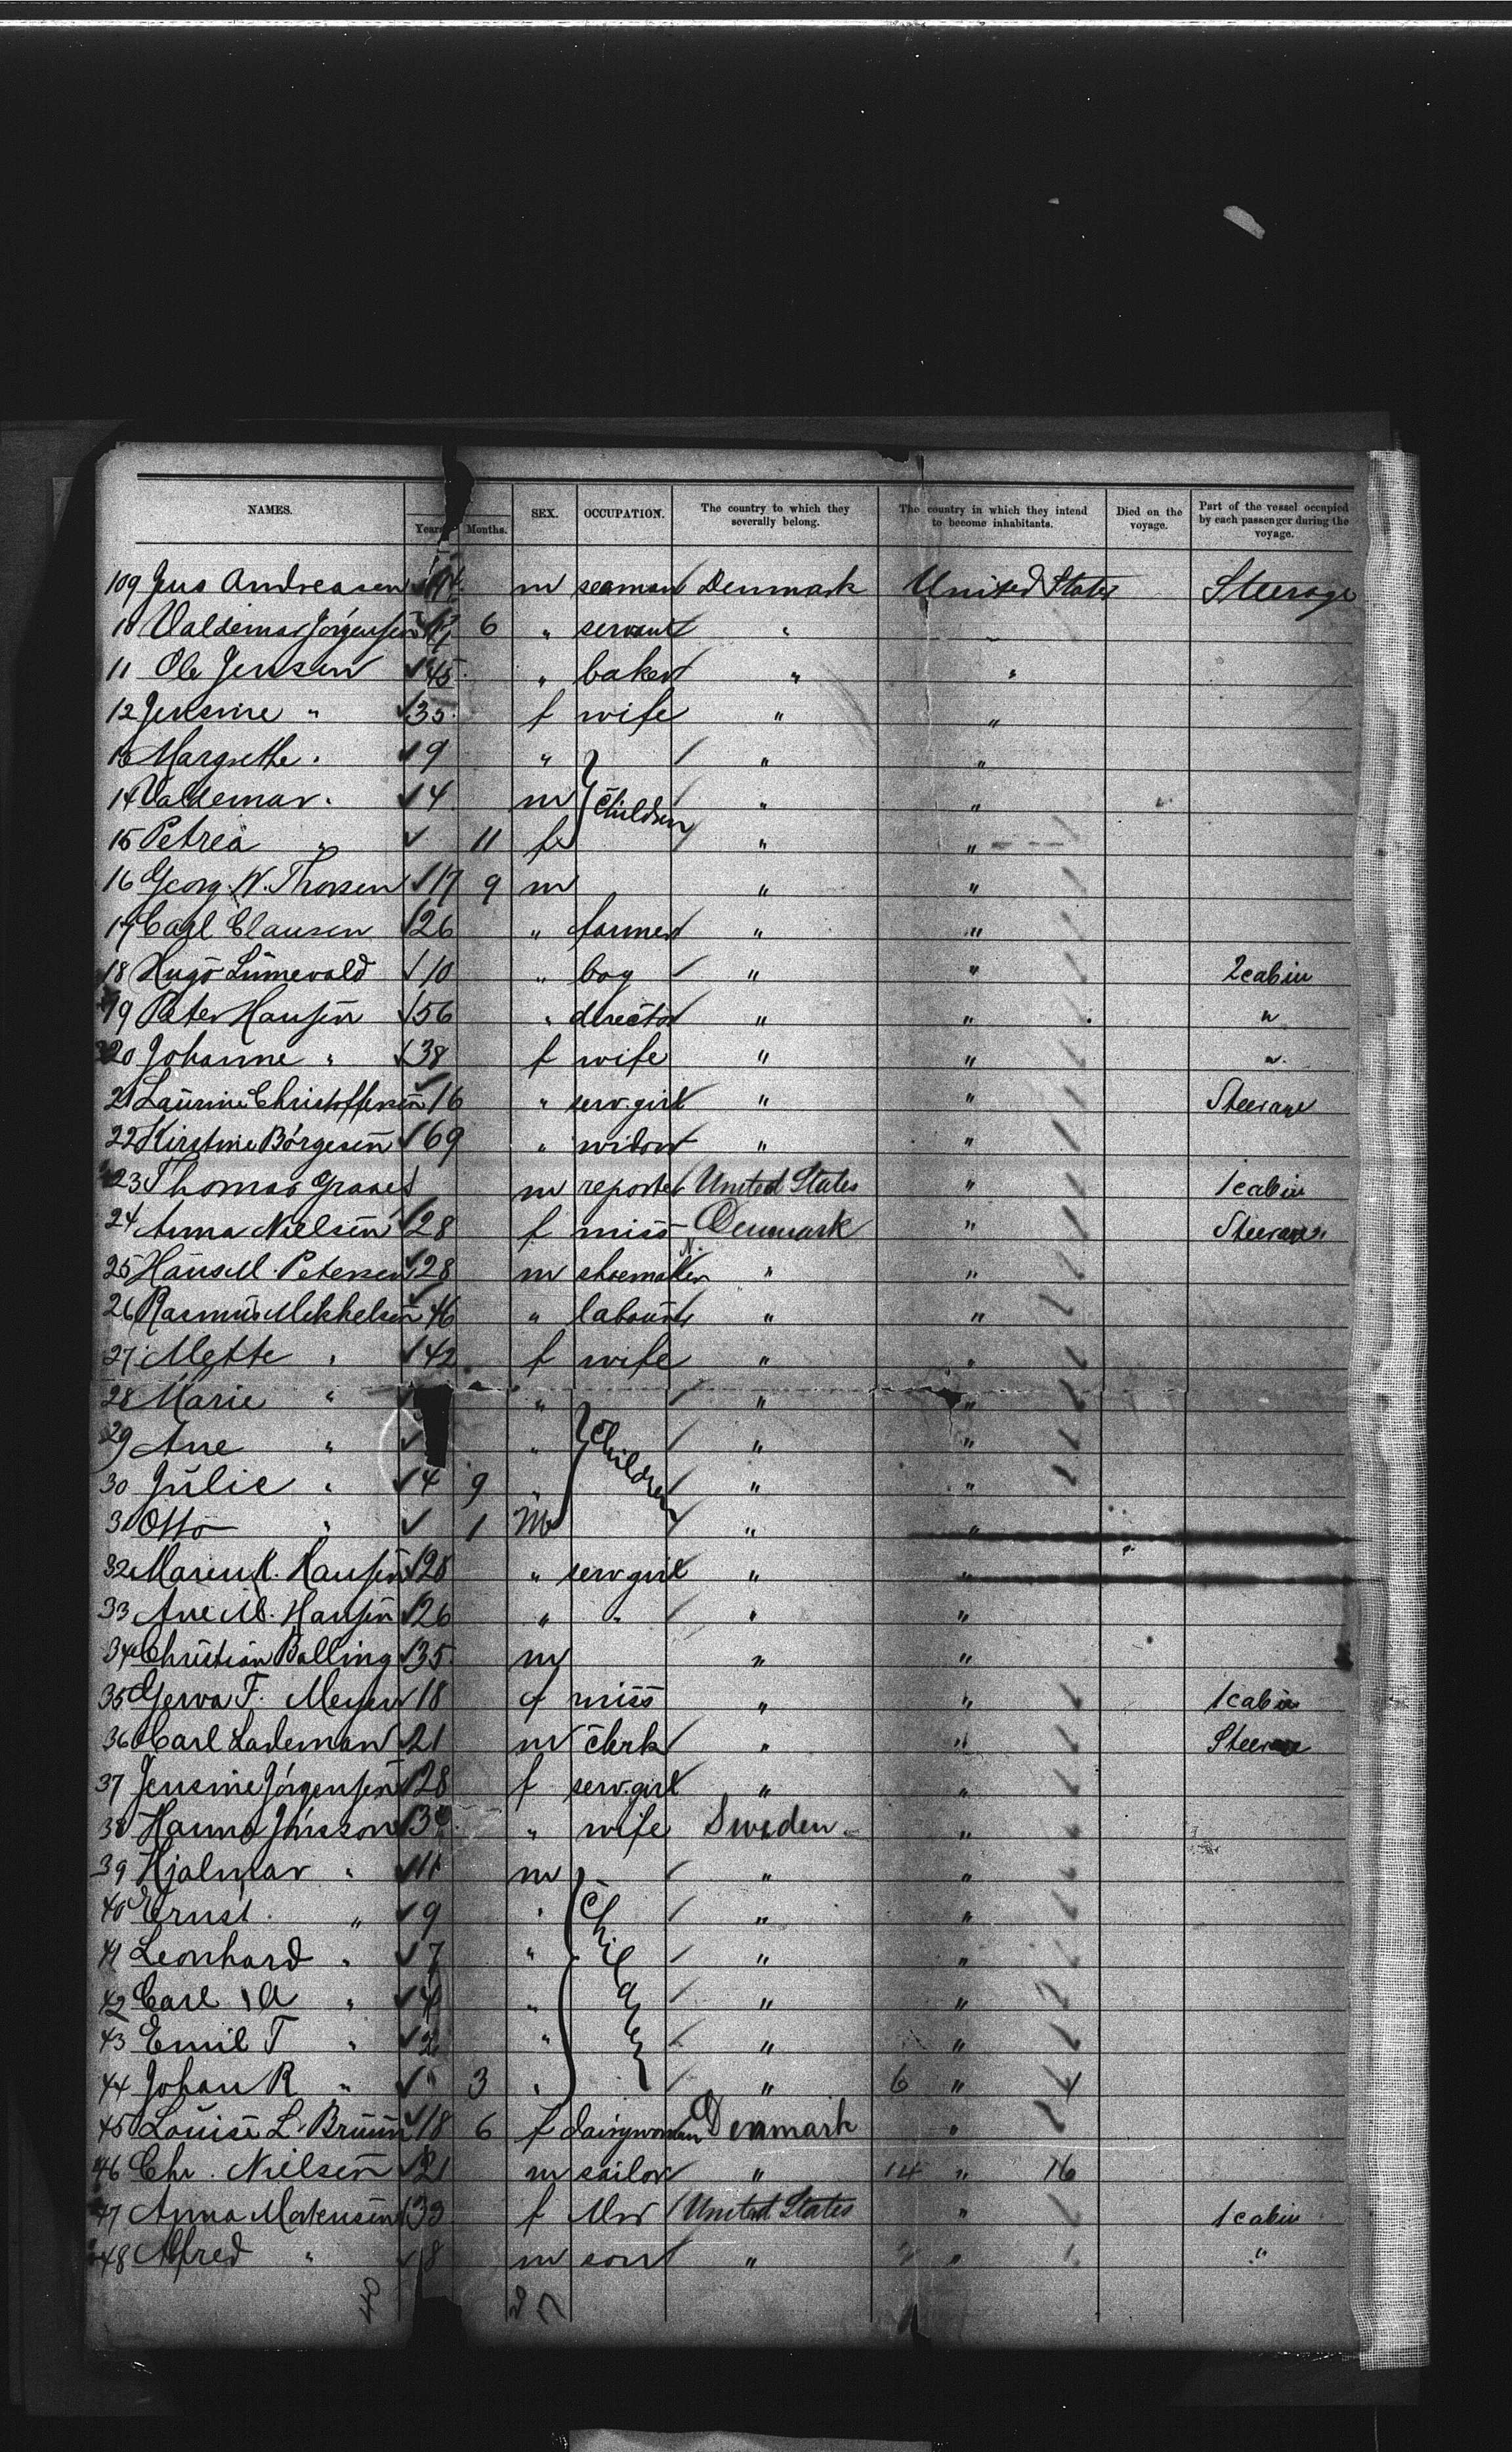 NAMES. Years Months. SEX. OCCUPATION. The country to which they severally belong. The country in which they intend to become inhabitants. Died on the voyage. Part of the vessel occupied by each passenger during the voyage.
109 Jens Andreasen m seaman Denmark United States Steerage
10 Valdemar Jörgensen 6 " servant " "
11 Ole Jensen 45 " baker " "
12 Jensine " 35 f wife " "
13 Margrethe " 9 " Children " "
14 Valdemar " 4 m " "
15 Petrea " 11 f " "
16 Georg W. Thorsen 17 9 m " "
17 Carl Clausen 26 " farmer " "
18 Hugo Lünevald 10 " boy " " 2 cabin
19 Peter Hansen 56 " director " " "
20 Johanne " 38 f wife " " "
21 Laurine Christoffersen 16 " serv. girl " " Steerage
22 Kirstine Börgesen 69 " widow " "
23 Thomas m reporter United States " 1 cabin
24 Anna Nielsen 28 f miss Denmark " Steerage
25 Hans M. Petersen 28 m shoemaker " "
26 Rasmus Mikkelsen 46 " labourer " "
27 Mette " 42 f wife " "
28 Marie " " Children " "
29 Ane " " " "
30 Julie " 4 9 " " "
31 Otto " 1 m " "
32 Maren K. Hansen 28 " serv. girl " "
33 Ane M. Hansen 26 " " " "
34 Christian Balling 35 m " "
35 Gerva F. Meyer 18 f miss " " 1 cabin
36 Carl Lademan 21 m clerk " " Steerage
37 Jensine Jörgensen 28 f serv. girl " "
38 Hanna Jönsson " wife Sweden "
39 Hjalmar " 11 m Children " "
40 Ernst " 9 " " "
41 Leonhard " 7 " " "
42 Carl A " 4 " " "
43 Emil T " 2 " " "
44 Johan R " " 3 " " 6 "
45 Louise L. Bruun 18 6 f dairywoman Denmark "
46 Chr. Nielsen 21 m sailor " 14 " 16
47 Anna Mortensen 33 f Mrs United States " 1 cabin
48 Alfred " 8 m son " " "
40 27